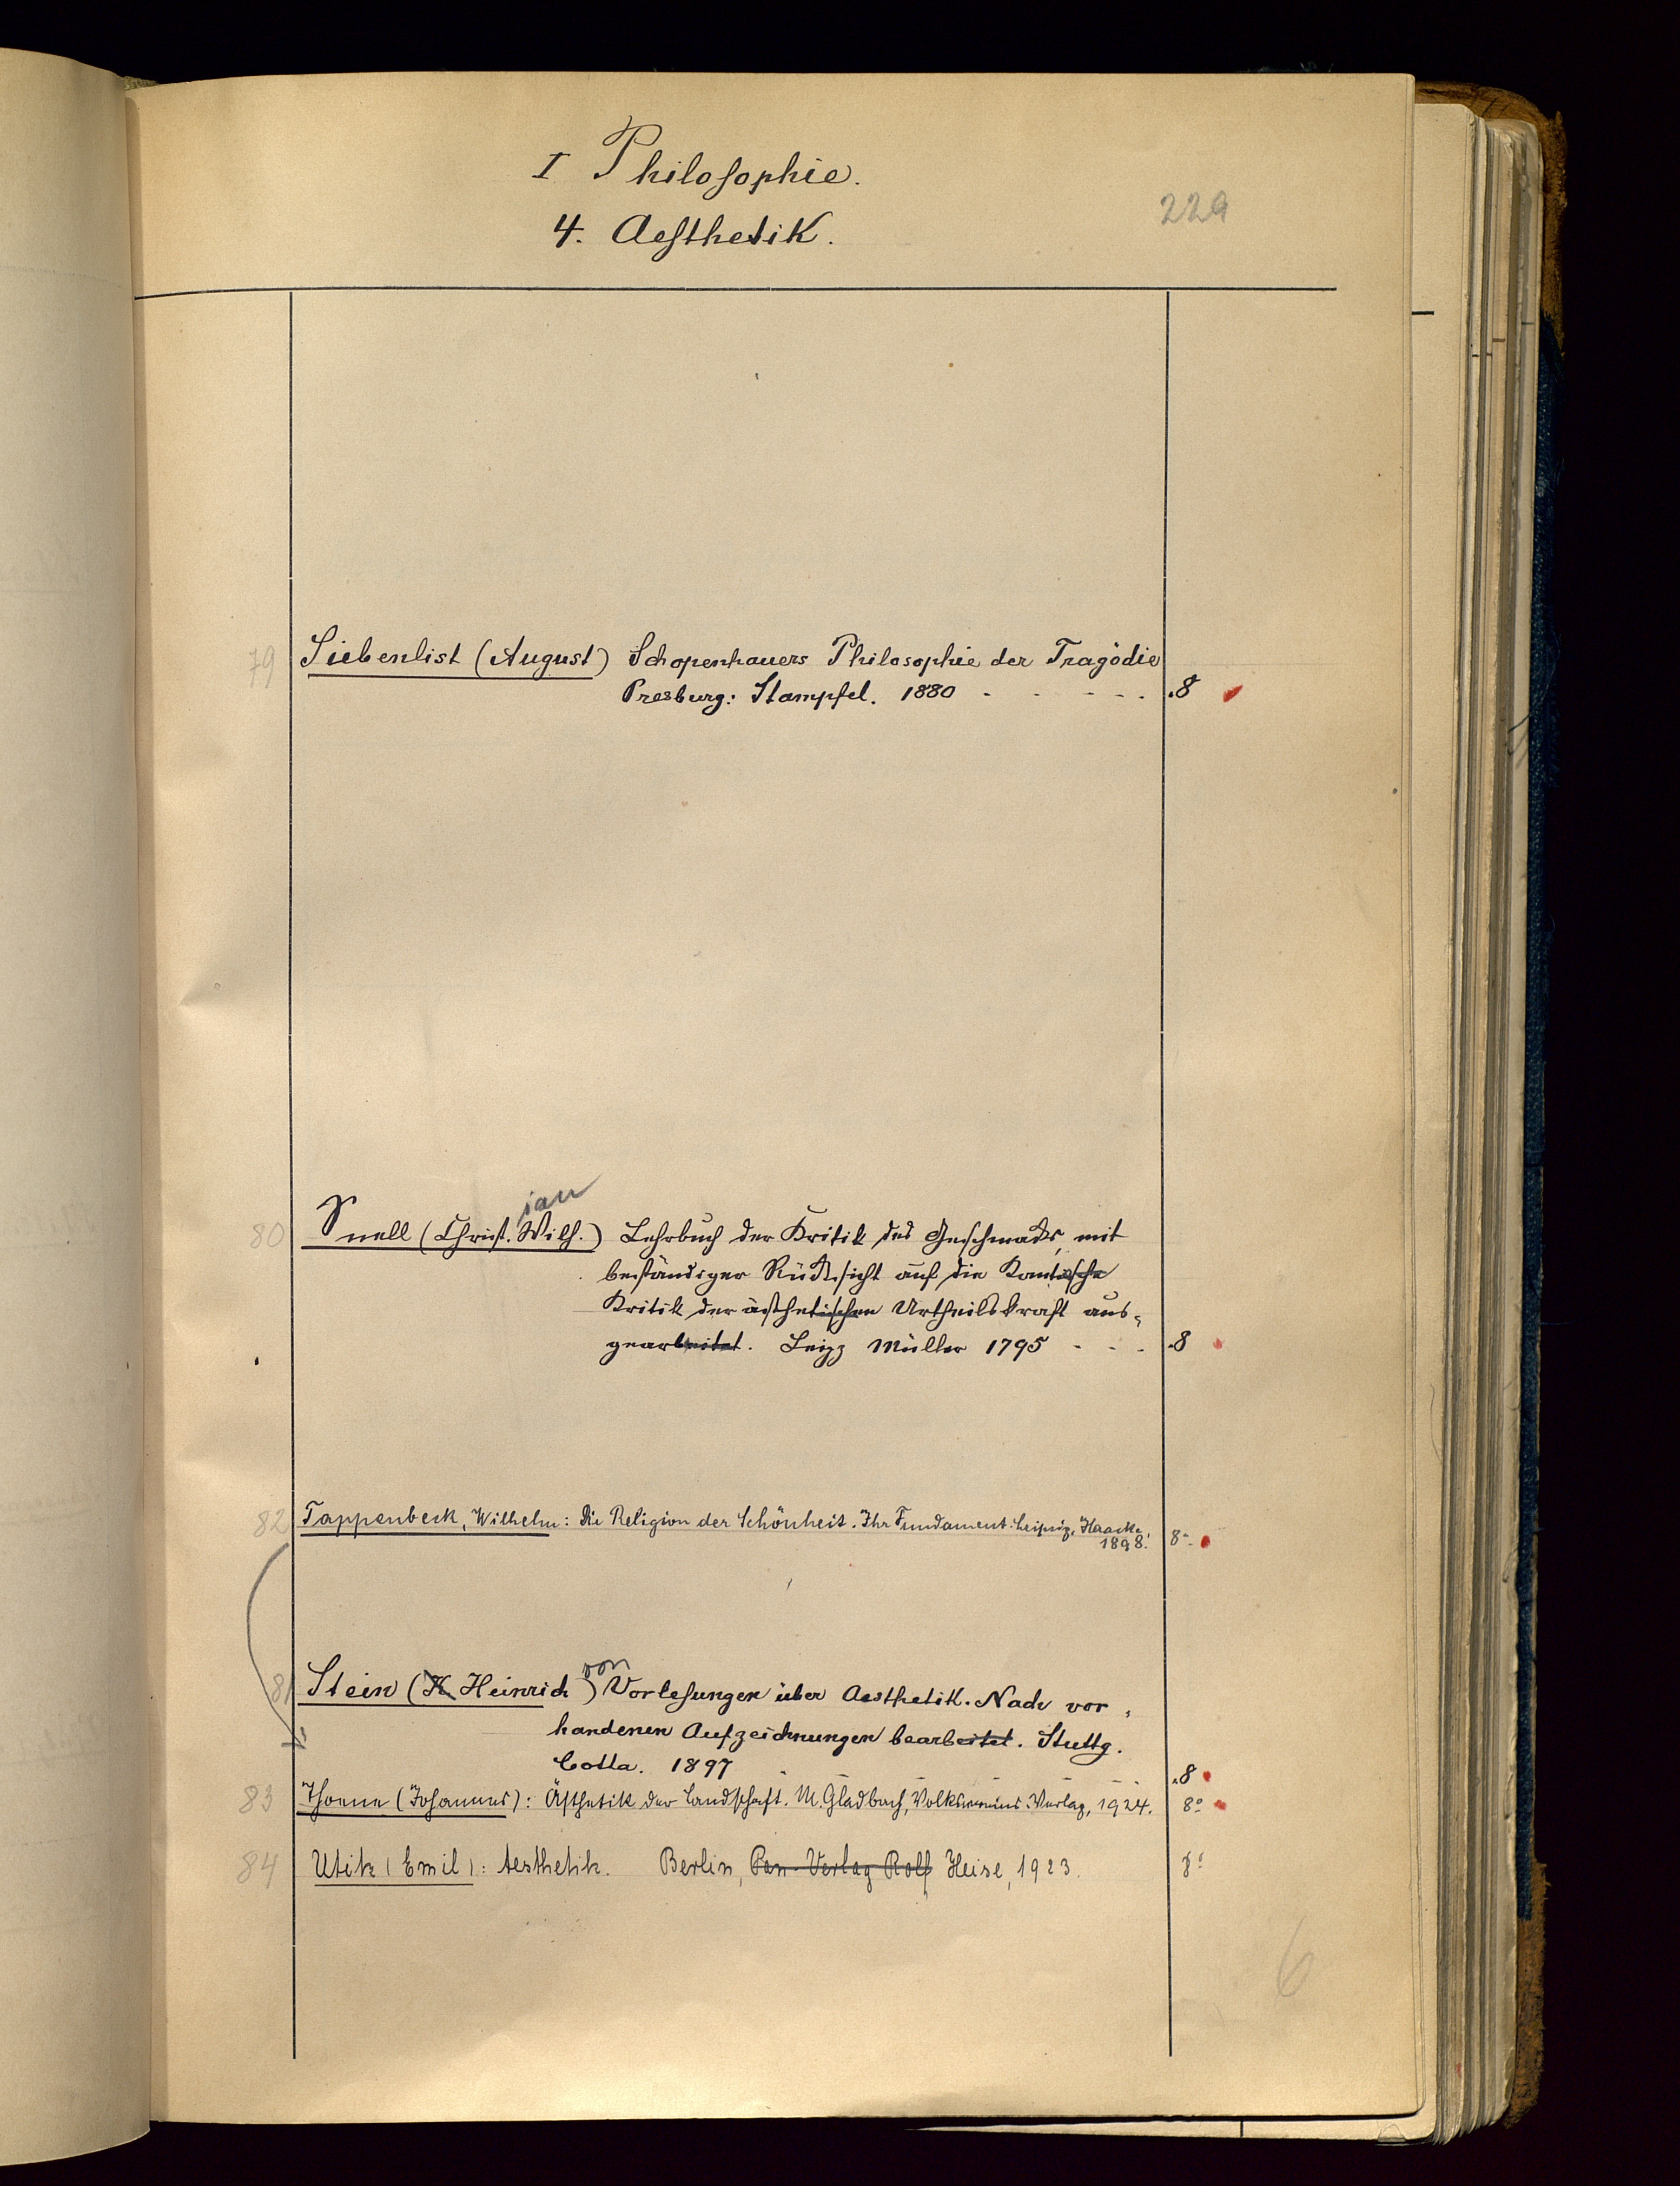 I Philosophie.
229
4. Aesthetik.
79 Siebenlist (August) Schopenhauers Philosophie der Tragödie
Presburg: Stampfel. 1880 - - - - - 8
ian
80 Snell (Christ. Wilh.) Lehrbuch der Kritik des Geschmacks, mit
beständiger Rücksicht auf die Kantische
Kritik der ästhetischen Urtheilskraft aus-
gearbeitet. Leipz Müller 1795 - - - 8
82 Tappenbeck, Wilhelm: Die Religion der Schönheit. Ihr Fundament. Leipzig, Haacke,
1898. 8°
von
81 Stein (K. Heinrich) Vorlesungen über Aesthetik. Nach vor-
handenen Aufzeichnungen bearbeitet. Stuttg.
Cotta. 1897 - - - - - 8
83 Thoene (Johannes): Ästhetik der Landschaft. M. Gladbach, Volksvereins-Verlag, 1924. 8°
84 Utitz (Emil): Aesthetik. Berlin, Pan-Verlag Rolf Heise, 1923. 8°
6